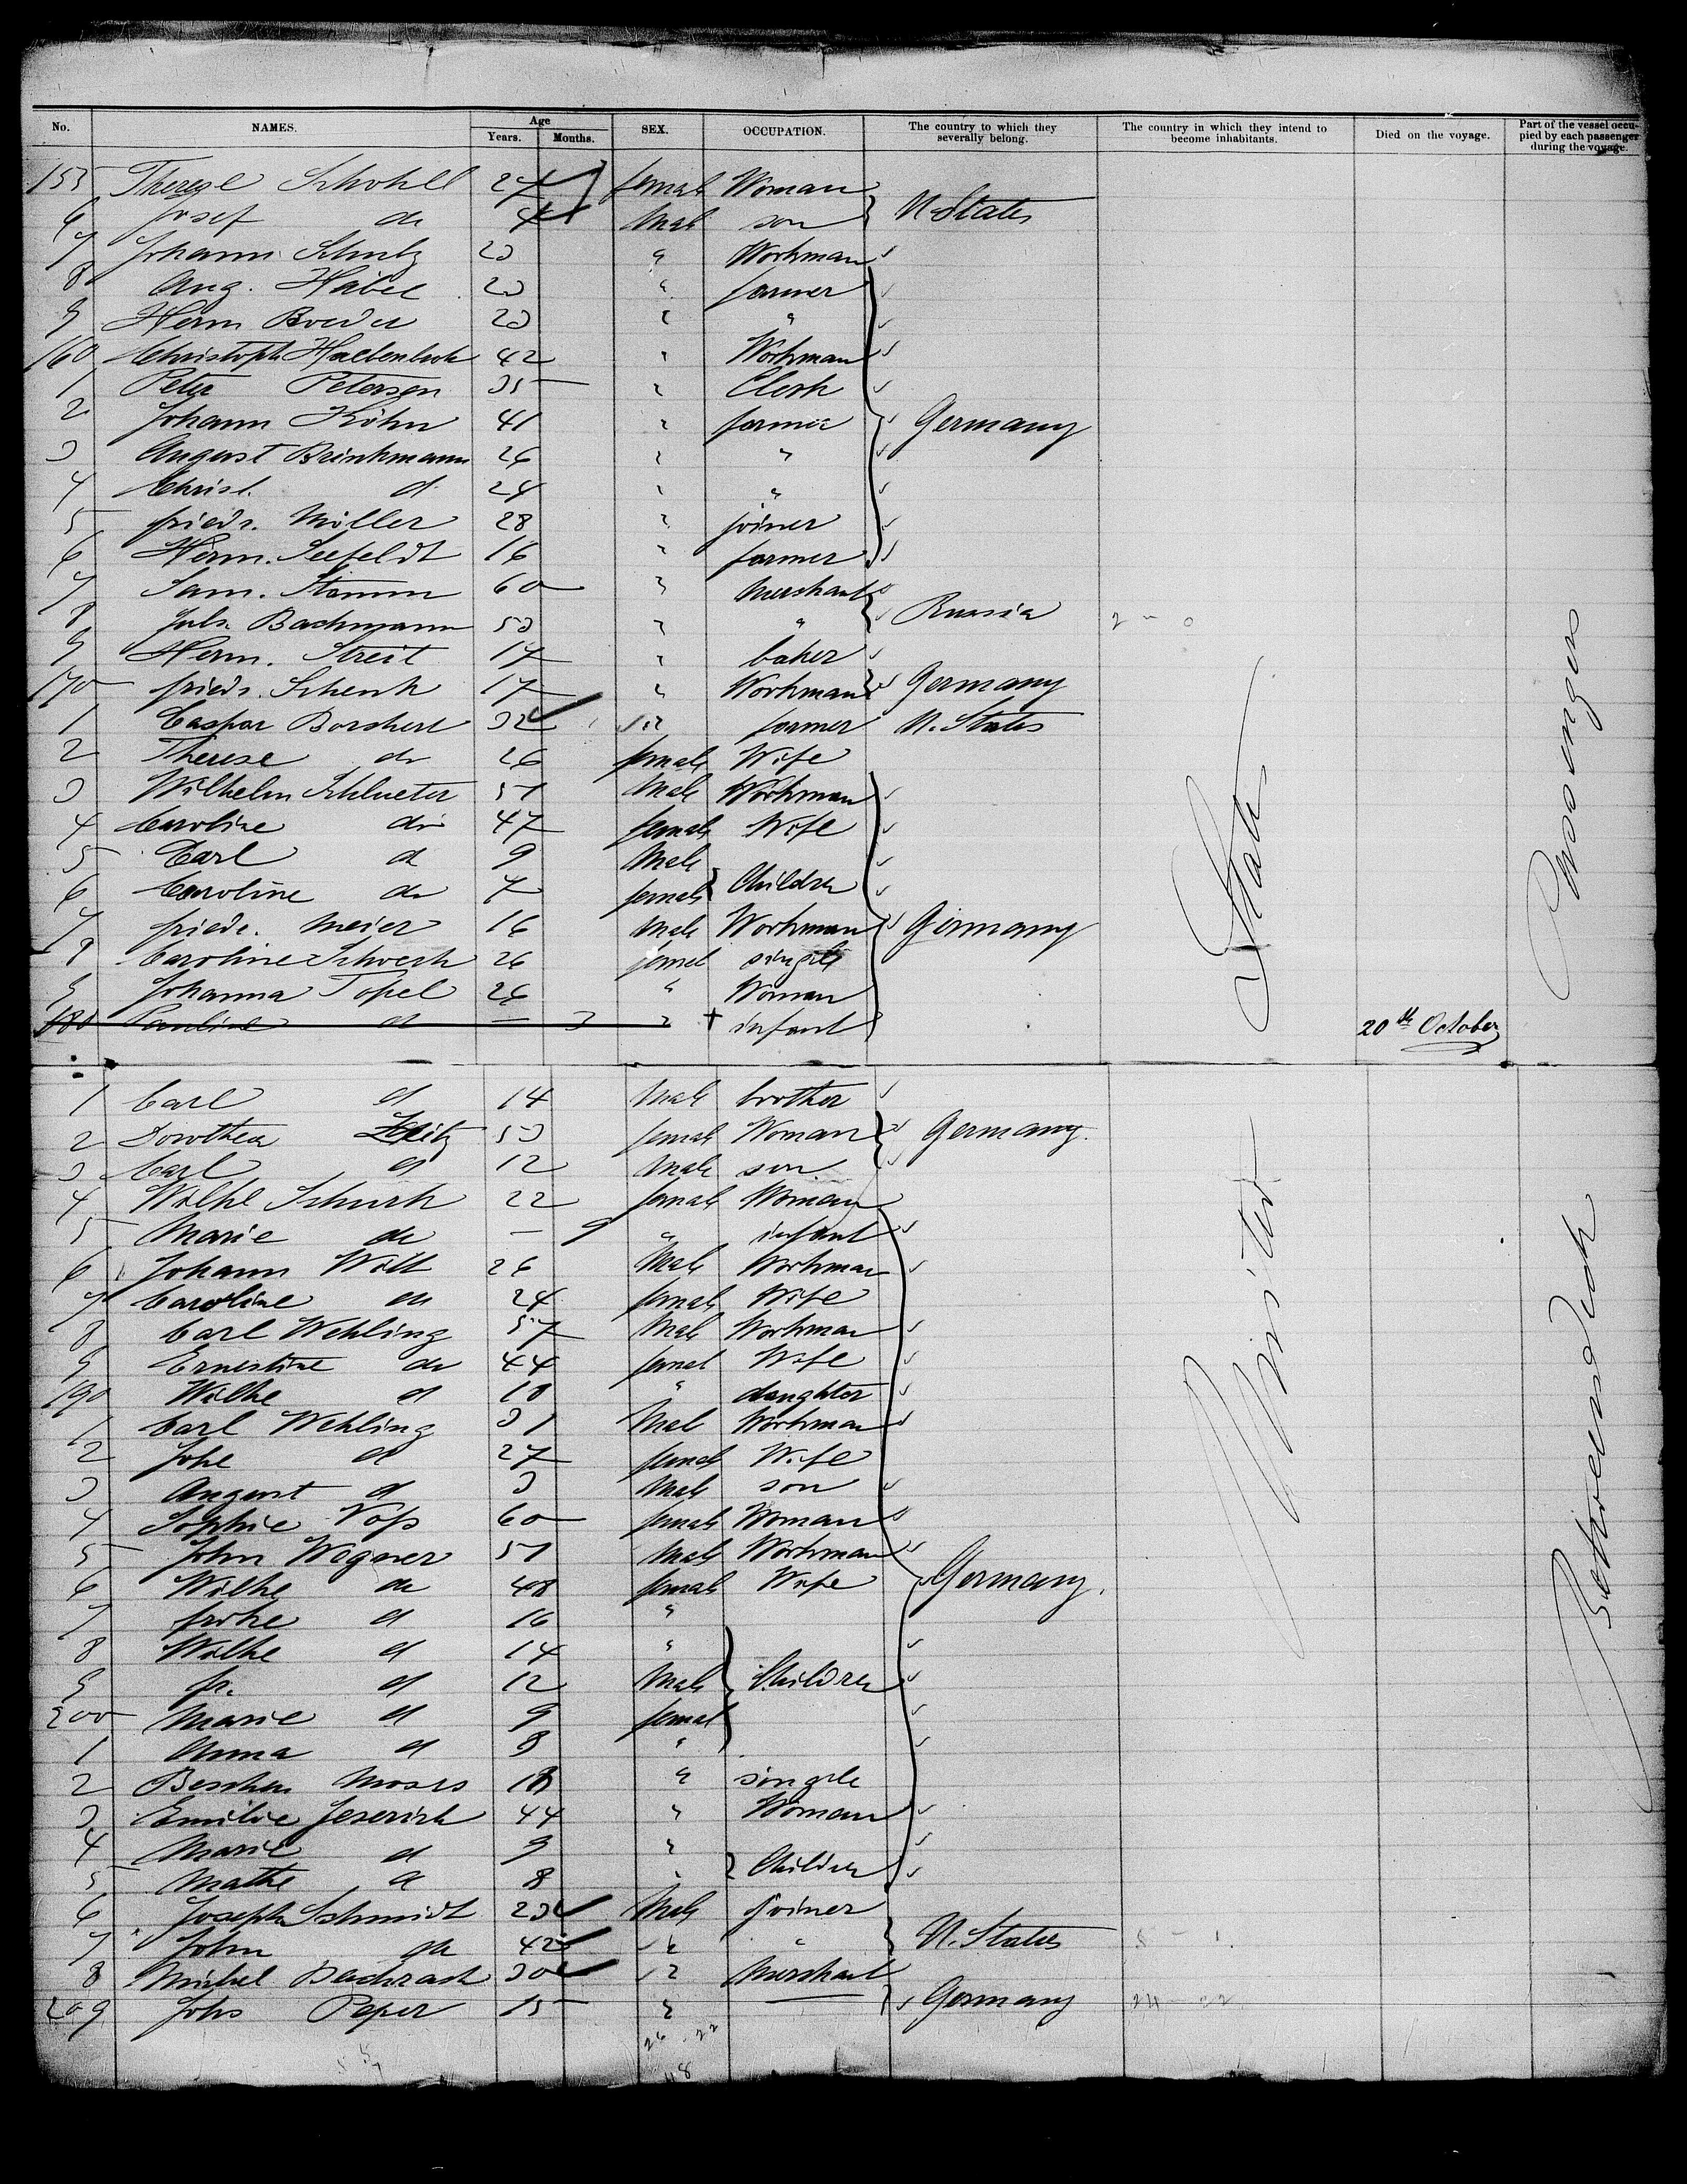 No. NAMES. Age Years. Months. SEX. OCCUPATION. The country to which they severally belong. The country in which they intend to become inhabitants. Died on the voyage. Part of the vessel occupied by each passenger during the voyage.
155 Therese 27 female Woman
6 Josef do 4 Male son U. States
7 Johann Schulz 23 " Workman
8 Aug. Habel 23 " farmer
9 Herm 23 " "
160 Christoph 42 " Workman
1 Peter Petersen 35 " Clerk
2 Johann Köhn 41 " farmer Germany
3 August Brinkmann 26 " "
4 Christ. d 24 " "
5 friedr. Möller 28 " joiner
6 Herm. Seefeldt 16 " farmer
7 Sam. Stamm 60 " Merchant
8 Juls. Bachmann 53 " " Russia
9 Herm. Streit 17 " baker
170 friedr. Schenk 17 " Workman Germany
1 Caspar Borchert 32 " farmer U. States
2 Therese do 26 female Wife
3 Wilhelm Schlueter 51 Male Workman
4 Caroline do 47 female Wife
5 Carl d 9 Male
6 Caroline do 7 female Children
7 friedr. Meier 16 Male Workman Germany
8 Caroline 26 femal single
9 Johanna Topel 26 " Woman
180 Pauline d — 3 " + infant 20th October
1 Carl d 14 Male brother
2 Dorothea 53 female Woman Germany.
3 Carl d 12 Male son
4 Wilhe 22 female Woman
5 Marie do — 9 " infant
6 Johann Witt 26 Male Workman
7 Caroline do 24 female Wife
8 Carl Wehling 57 Male Workman
9 Ernestine do 44 femal Wife
190 Wilhe d 18 " daughter
1 Carl Wehling 31 Male Workman
2 Johe d 27 femal Wife
3 August d 3 Male son
4 Sophie Voss 60 female Woman
5 John Wegner 51 Male Workman
6 Wilhe do 48 female Wife Germany.
7 d 16 "
8 Wilhe d 14 "
9 fr. d 12 Male Children
200 Marie d 9 femal
1 Anna d 8 "
2 Moses 18 " single
3 Emilie Jeserich 44 " Woman
4 Marie d 9 "
5 Mathe d 8 " Children
6 Joseph Schmidt 23 Male joiner
7 John do 42 " " U. States
8 Michel Bachrach 30 " Merchant
209 Johs Peper 15 " — Germany
United States
Between deck Passengers